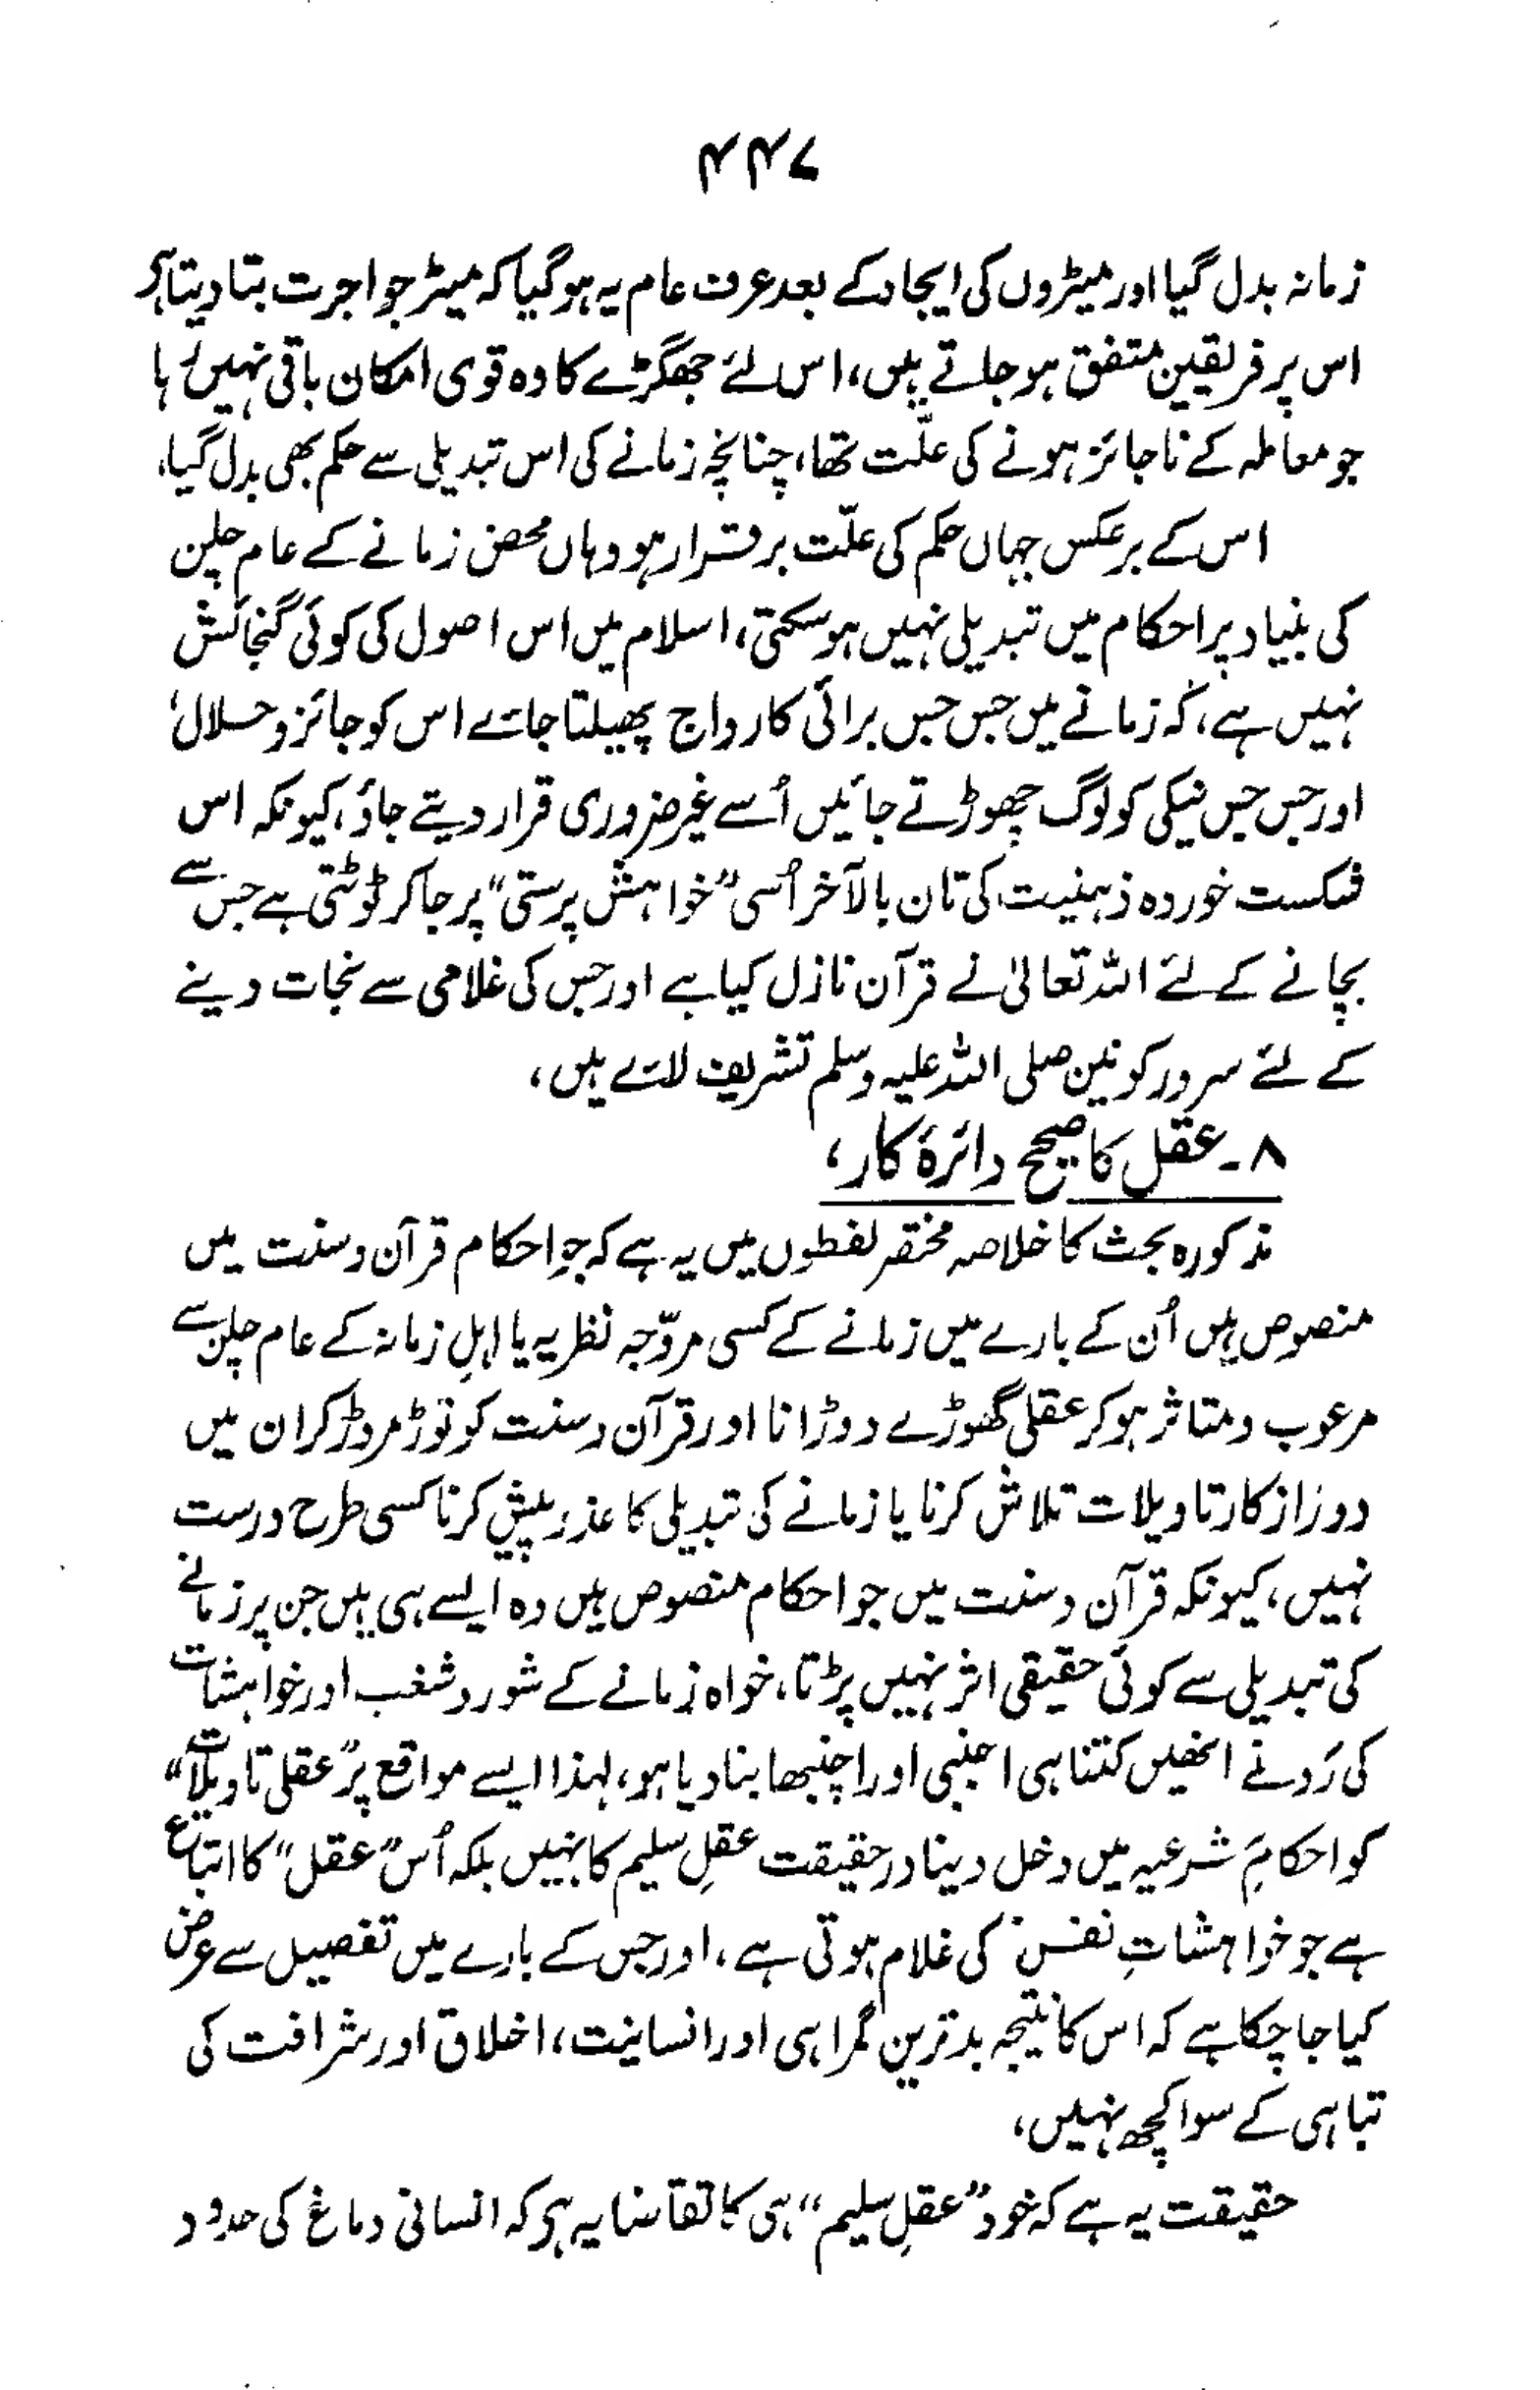 ۴۴۷
زمانہ بدل گیا اور میٹروں کی ایجاد کے بعد عرف عام یہ ہوگیا کہ میٹر جو اجرت بتا دیتا ہے
اس پر فریقین متفق ہو جاتے ہیں، اس لئے جھگڑے کا وہ قوی امکان باقی نہیں رہا
جو معاملہ کے ناجائز ہونے کی علّت تھا، چنانچہ زمانے کی اس تبدیلی سے حکم بھی بدل گیا،
اس کے برعکس جہاں حکم کی علّت برقرار ہو وہاں محض زمانے کے عام چلن
کی بنیاد پر احکام میں تبدیلی نہیں ہوسکتی، اسلام میں اس اصول کی کوئی گنجائش
نہیں ہے، کہ زمانے میں جس جس برائی کا رواج پھیلتا جائے اس کو جائز و حلال؛
اور جس جس نیکی کو لوگ چھوڑتے جائیں اُسے غیر ضروری قرار دیتے جاؤ، کیونکہ اس
شکست خوردہ ذہنیت کی تان بالآخر اُسی ”خواہش پرستی“ پر جا کر ٹوٹتی ہے جس سے
بچانے کے لئے اللہ تعالیٰ نے قرآن نازل کیا ہے اور جس کی غلامی سے نجات دینے
کے لئے سرور کونین صلی اللہ علیہ وسلم تشریف لائے ہیں،
۸۔ عقل کا صحیح دائرۂ کار،
مذکورہ بحث کا خلاصہ مختصر لفظوں میں یہ ہے کہ جو احکام قرآن و سنت میں
منصوص ہیں اُن کے بارے میں زمانے کے کسی مروّجہ نظریہ یا اہلِ زمانہ کے عام چلن سے
مرعوب و متاثر ہو کر عقلی گھوڑے دوڑانا اور قرآن و سنت کو توڑ مروڑ کر ان میں
دور از کار تاویلات تلاش کرنا یا زمانے کی تبدیلی کا عذر پیش کرنا کسی طرح درست
نہیں، کیونکہ قرآن و سنت میں جو احکام منصوص ہیں وہ ایسے ہی ہیں جن پر زمانے
کی تبدیلی سے کوئی حقیقی اثر نہیں پڑتا، خواہ زمانے کے شور و شغب اور خواہشات
کی رَو نے انھیں کتنا ہی اجنبی اور اچنبھا بنا دیا ہو، لہٰذا ایسے مواقع پر ”عقلی تاویلات“
کو احکامِ شرعیہ میں دخل دینا درحقیقت عقلِ سلیم کا نہیں بلکہ اُس ”عقل“ کا اتباع
ہے جو خواہشاتِ نفس کی غلام ہوتی ہے، اور جس کے بارے میں تفصیل سے عرض
کیا جا چکا ہے کہ اس کا نتیجہ بدترین گمراہی اور انسانیت، اخلاق اور شرافت کی
تباہی کے سوا کچھ نہیں،
حقیقت یہ ہے کہ خود ”عقلِ سلیم“ ہی کا تقاضا یہ ہے کہ انسانی دماغ کی حدود